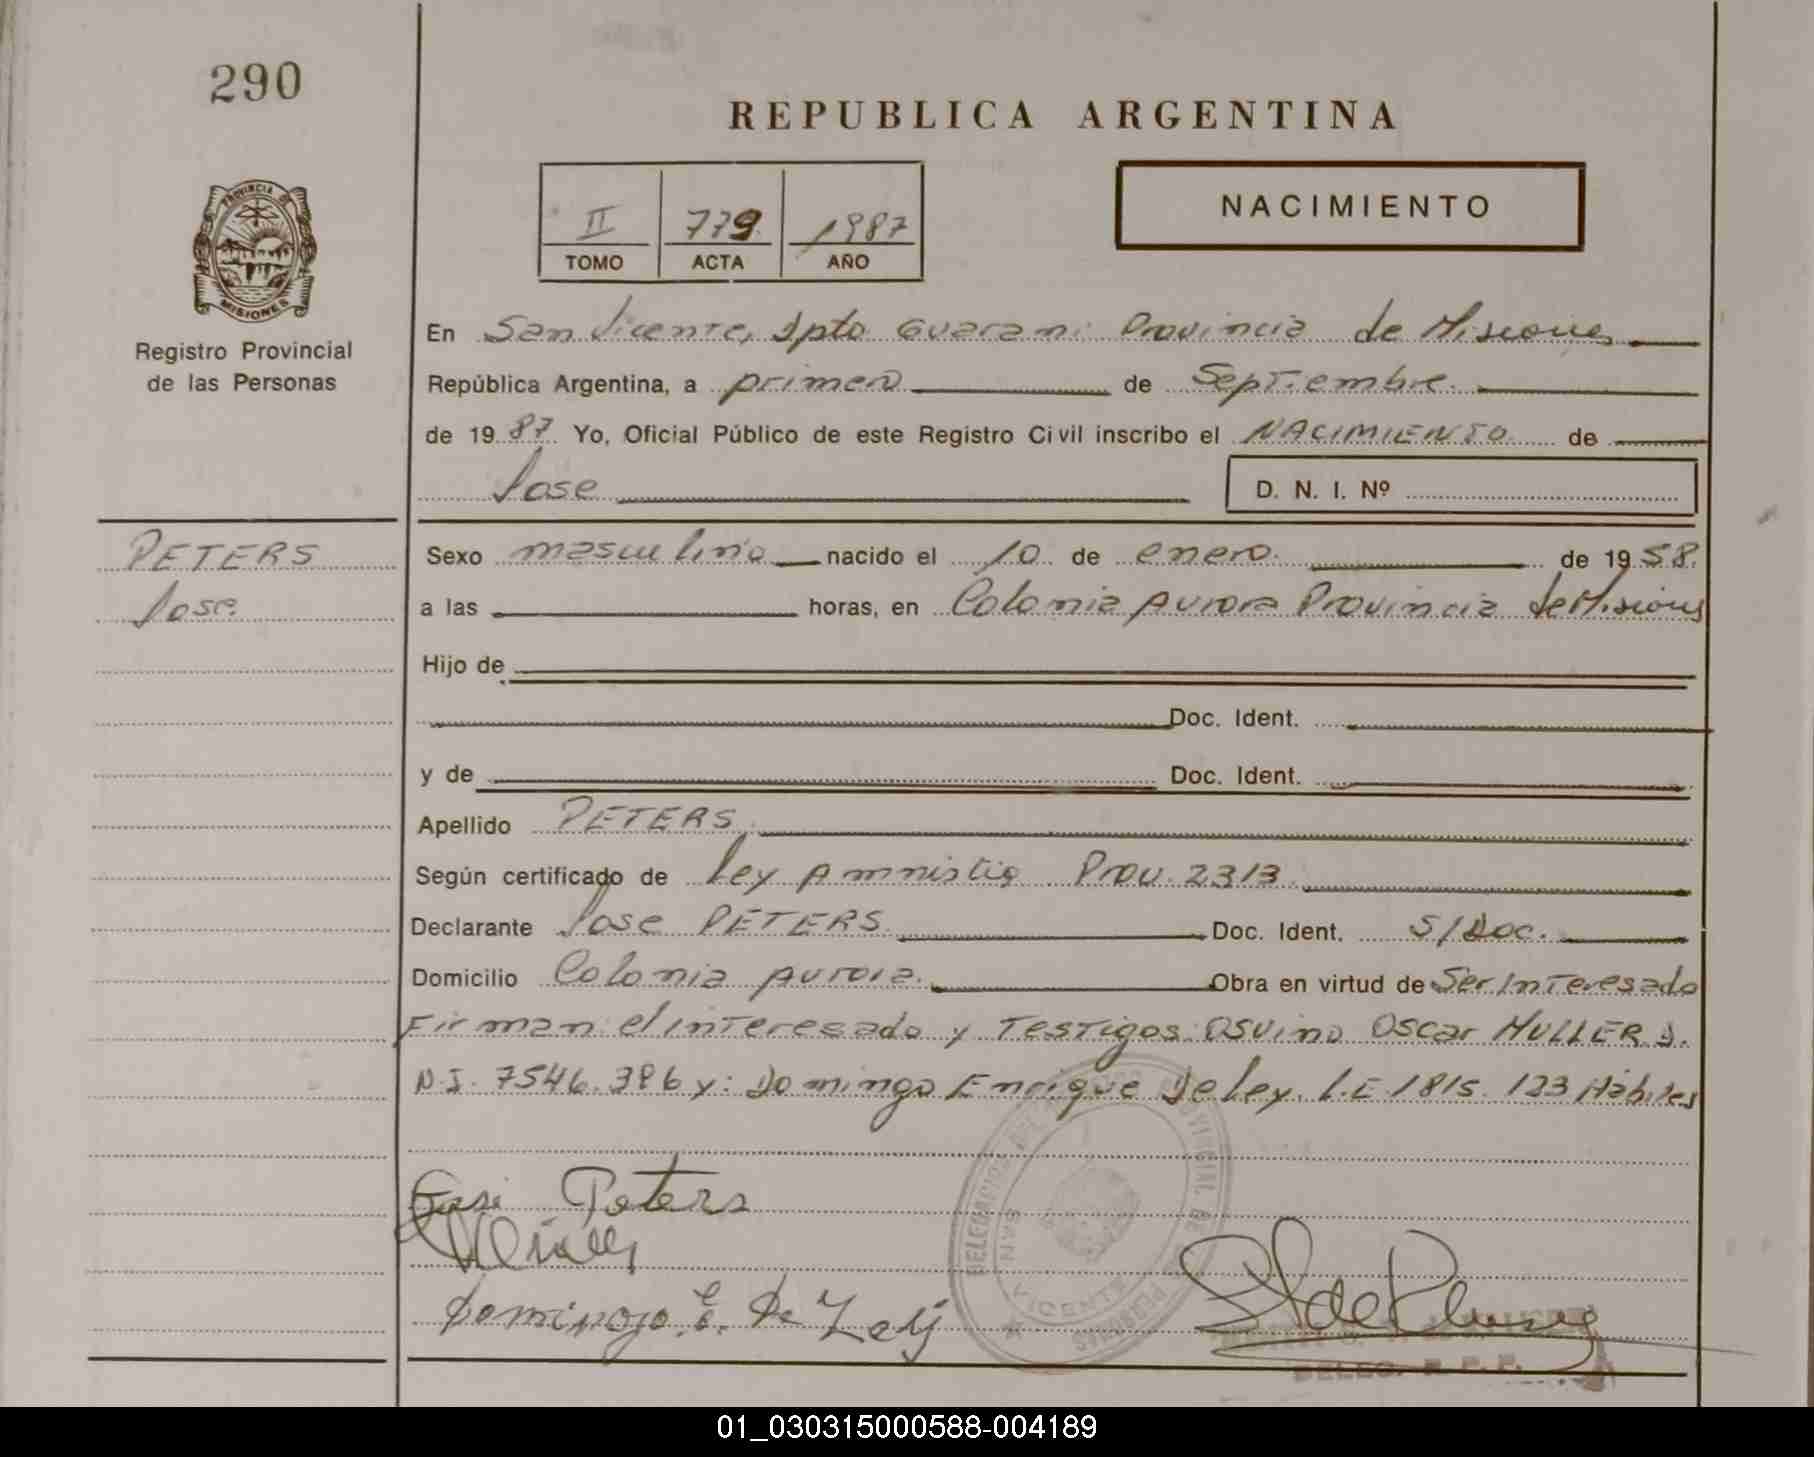 290
REPUBLICA ARGENTINA
NACIMIENTO
II 779 1987
TOMO ACTA AÑO
PROVINCIA DE
MISIONES
Registro Provincial
de las Personas
En San Vicente, Dpto Guarani Provincia de Misiones
República Argentina, a primero de Septiembre
de 1987. Yo, Oficial Público de este Registro Civil inscribo el NACIMIENTO de
Jose D. N. I. Nº
PETERS
Jose
Sexo masculino nacido el 10 de enero de 1958.
a las horas, en Colonia Aurora Provincia de Misiones
Hijo de
Doc. Ident.
y de Doc. Ident.
Apellido PETERS
Según certificado de Ley Amnistia Prov. 2313
Declarante Jose PETERS Doc. Ident. S/Doc.
Domicilio Colonia Aurora. Obra en virtud de Ser Interesado
Firman el interesado y Testigos: Osvino Oscar MULLER D.
N.I. 7546.396 y: Domingo Enrique De Ley. L.E 1815.123 Hábiles
Peters
Domingo E. De Ley
DELEGACION PROVINCIAL DE
SAN VICENTE
MISIONES
DELEG. R. P. P.
01_030315000588-004189